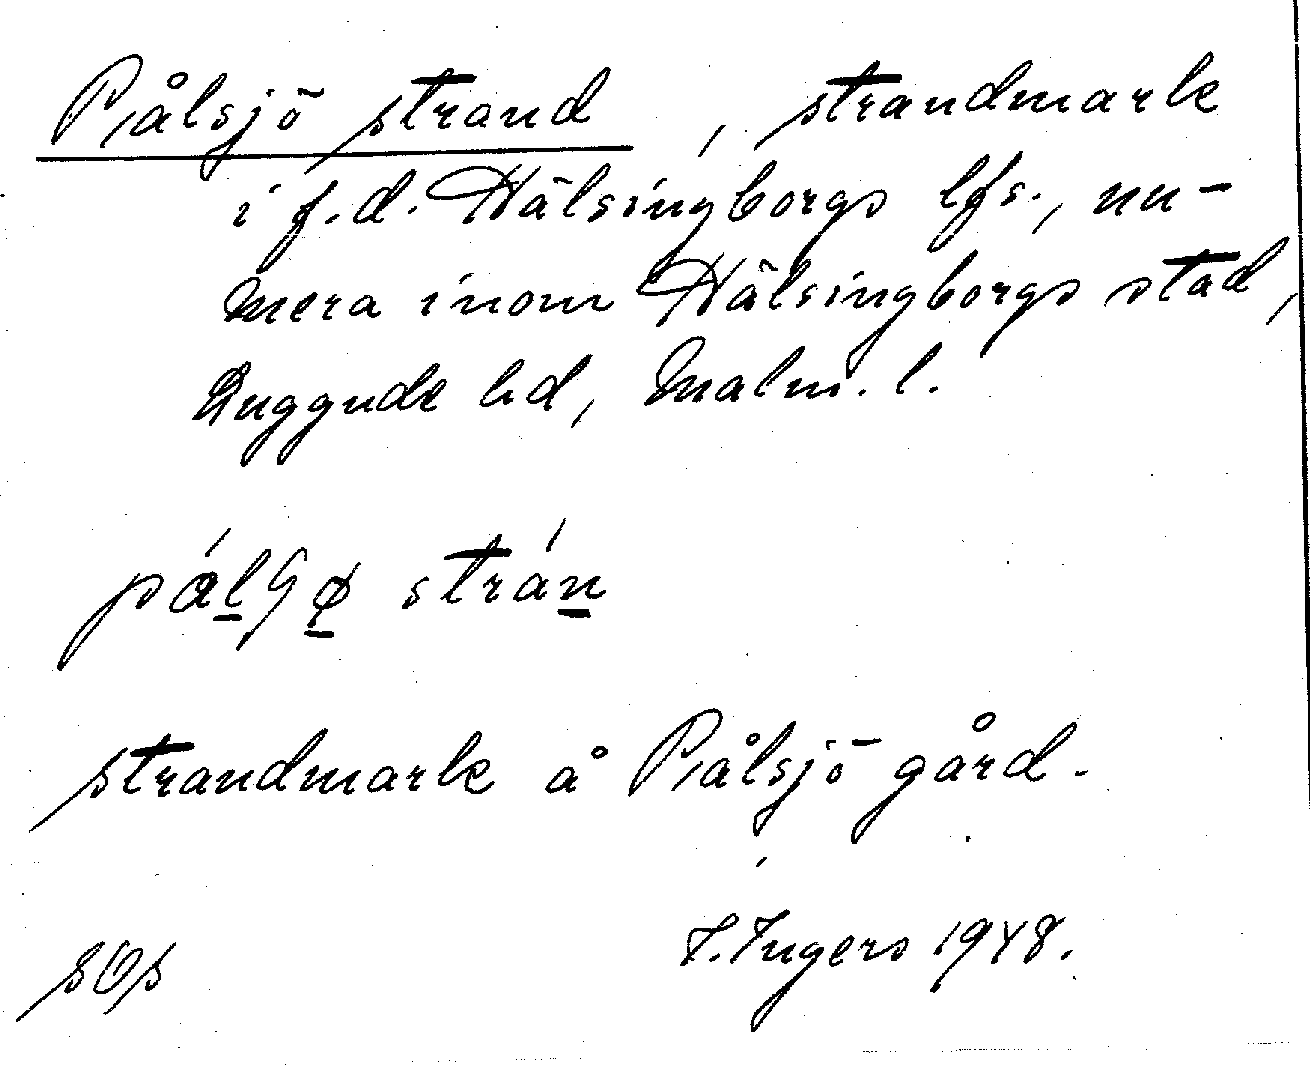 Pålsjö strand, strandmark
i f.d. Hälsingborgs lfs., nu-
mera inom Hälsingborgs stad,
Luggude hd, Malm. l.
strán
strandmark å Pålsjö gård.
I. Ingers 1948.